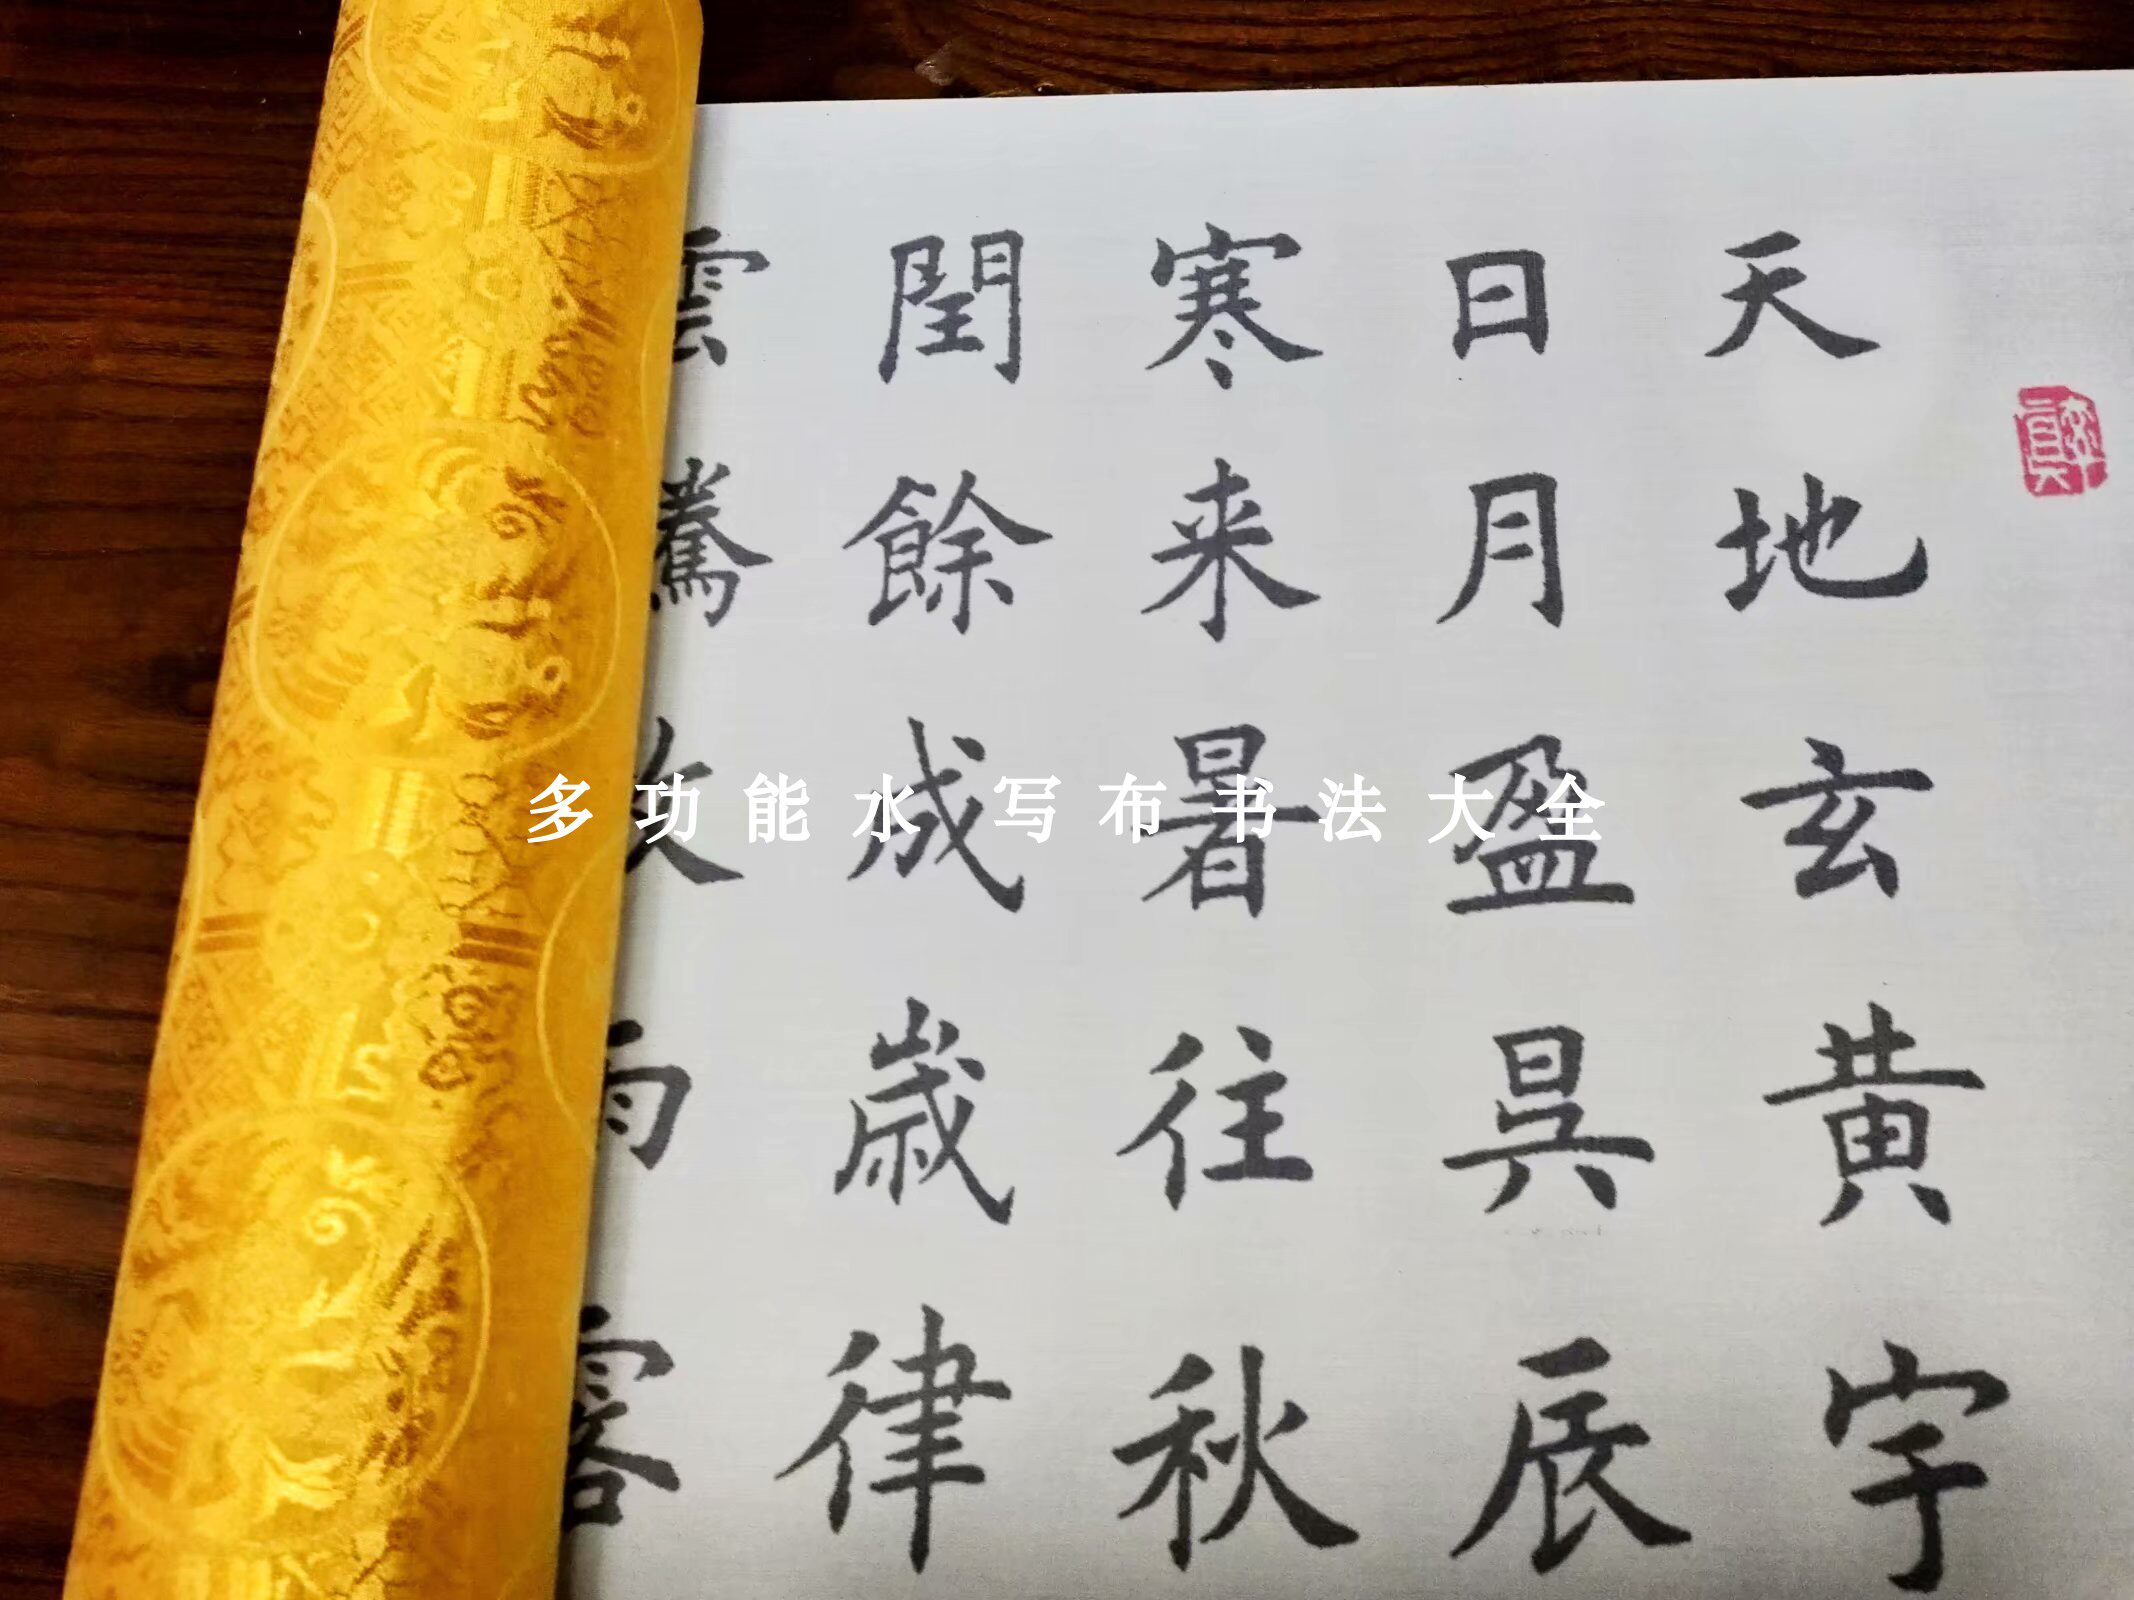 天地玄黄宇
日月盈昃辰
寒来暑往秋
閏餘成歳律
雲騰致雨露
多功能水写布书法大全